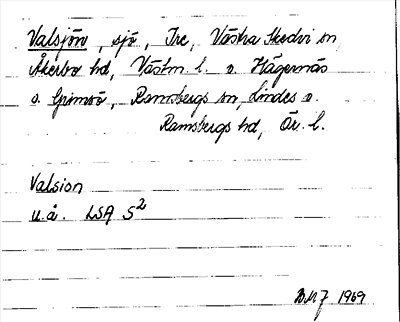 Valsjön, sjö, Tre, Västra Skedvi sn,
Åkerbo hd, Västm. l. o. Hägernäs
o. Grimsö, Ramsbergs sn, Lindes o.
Ramsbergs hd, Ör. l.
Valsion
u.å. LSA S²
1969